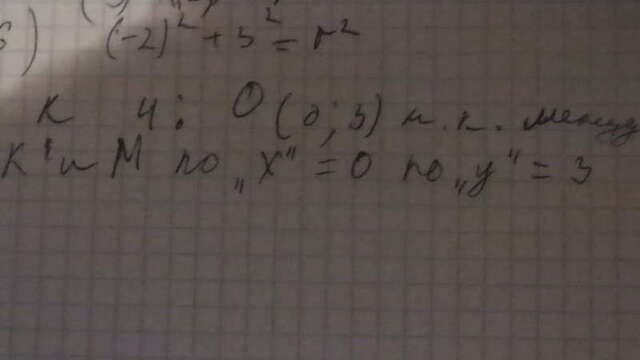 б) (-2)² + 3² = r²
К 4: O (0; 3) т.к. между
К и М по „X" = 0 по „y" = 3